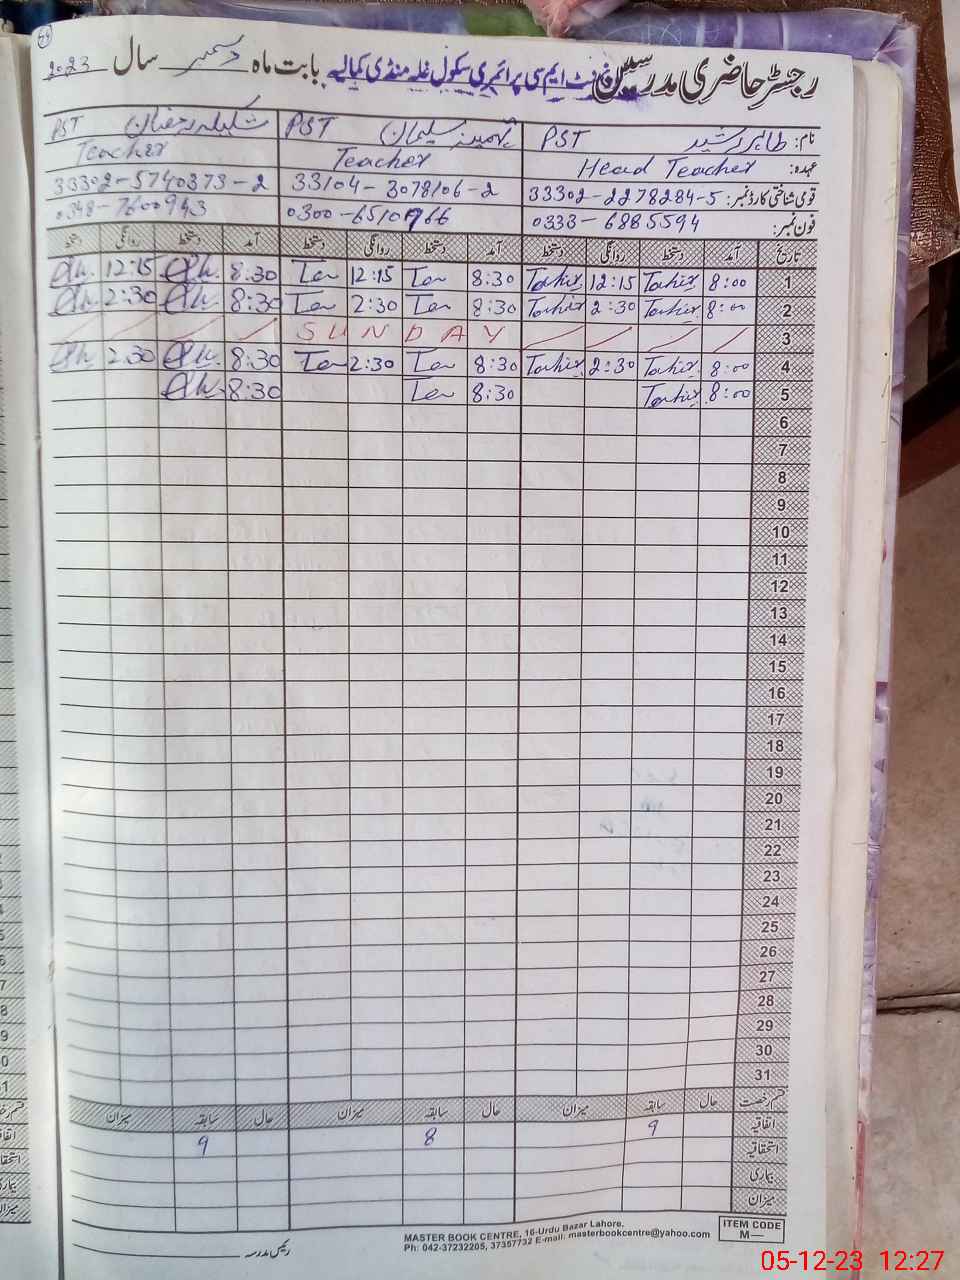 44
رجسٹر حاضری مدرسین گورنمنٹ ایم سی پرائمری سکول غلہ منڈی کمالیہ بابت ماہ دسمبر سال 2023
نام: طاہر رشید PST تہمینہ سلیمان PST شکیلہ رمضان PST
عہدہ: Head Teacher Teacher Teacher
قومی شناختی کارڈ نمبر: 33302-2278284-5 33104-3078106-2 33302-5740373-2
فون نمبر: 0333-6885594 0300-6510966 0348-7600943
تاریخ آمد دستخط روانگی دستخط آمد دستخط روانگی دستخط آمد دستخط روانگی دستخط
1 8:00 Tahir 12:15 Tahir 8:30 12:15 8:30 12:15
2 8:00 Tahir 2:30 Tahir 8:30 2:30 8:30 2:30
3 SUNDAY
4 8:00 Tahir 2:30 Tahir 8:30 2:30 8:30 2:30
5 8:00 Tahir 8:30 8:30
6
7
8
9
10
11
12
13
14
15
16
17
18
19
20
21
22
23
24
25
26
27
28
29
30
31
قسم رخصت حال سابقہ میزان حال سابقہ میزان حال سابقہ میزان
اتفاقیہ 9 8 9
استحقاقیہ
بیماری
میزان
رئیس مدرسہ
MASTER BOOK CENTRE, 16-Urdu Bazar Lahore.
Ph: 042-37232205, 37357732 E-mail: masterbookcentre@yahoo.com
ITEM CODE
M—
05-12-23 12:27